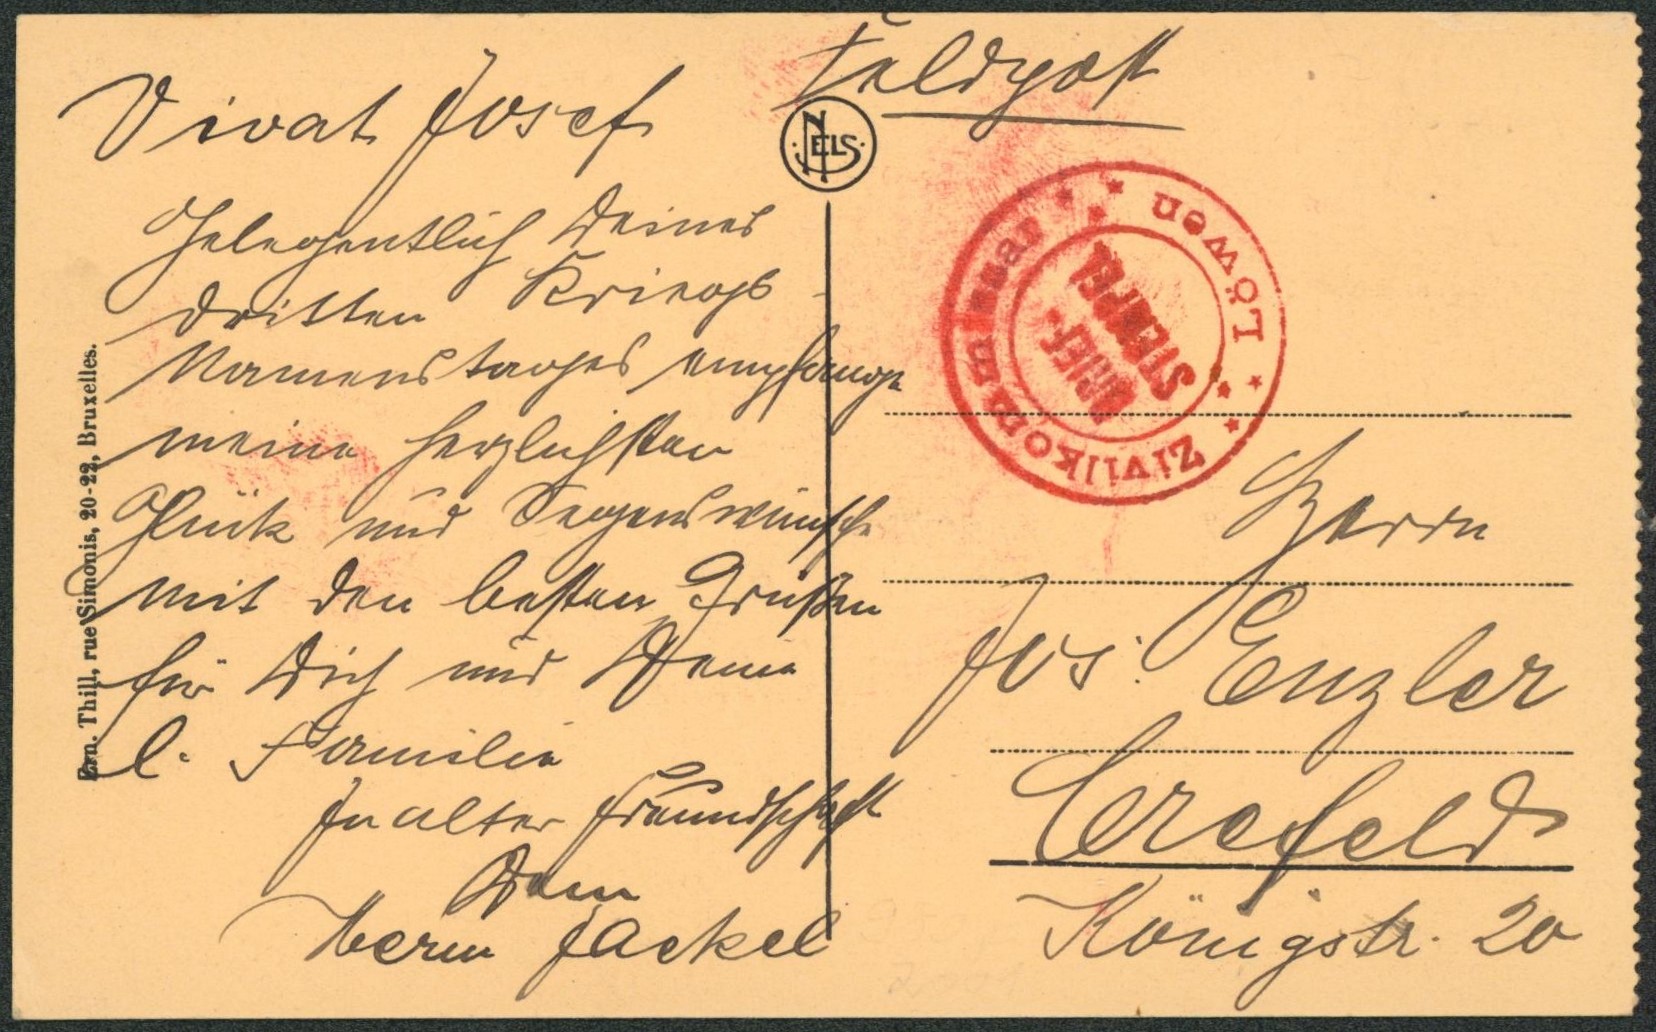 Feldpost
Vivat Josef
Gelegentlich Deines
dritten Kriegs-
Namenstages empfange
meine herzlichsten
Glück und Segenswünsche
mit den besten Grüßen
für Dich und Deine
l. Familie
In alter Freundschaft
Dein
Herm Jäckel
NELS
Zivilkommissar Löwen
BRIEF-
STEMPEL
Herrn
Jos. Enzler
Crefeld
Königstr. 20
Ern. Thill, rue Simonis, 20-22, Bruxelles.